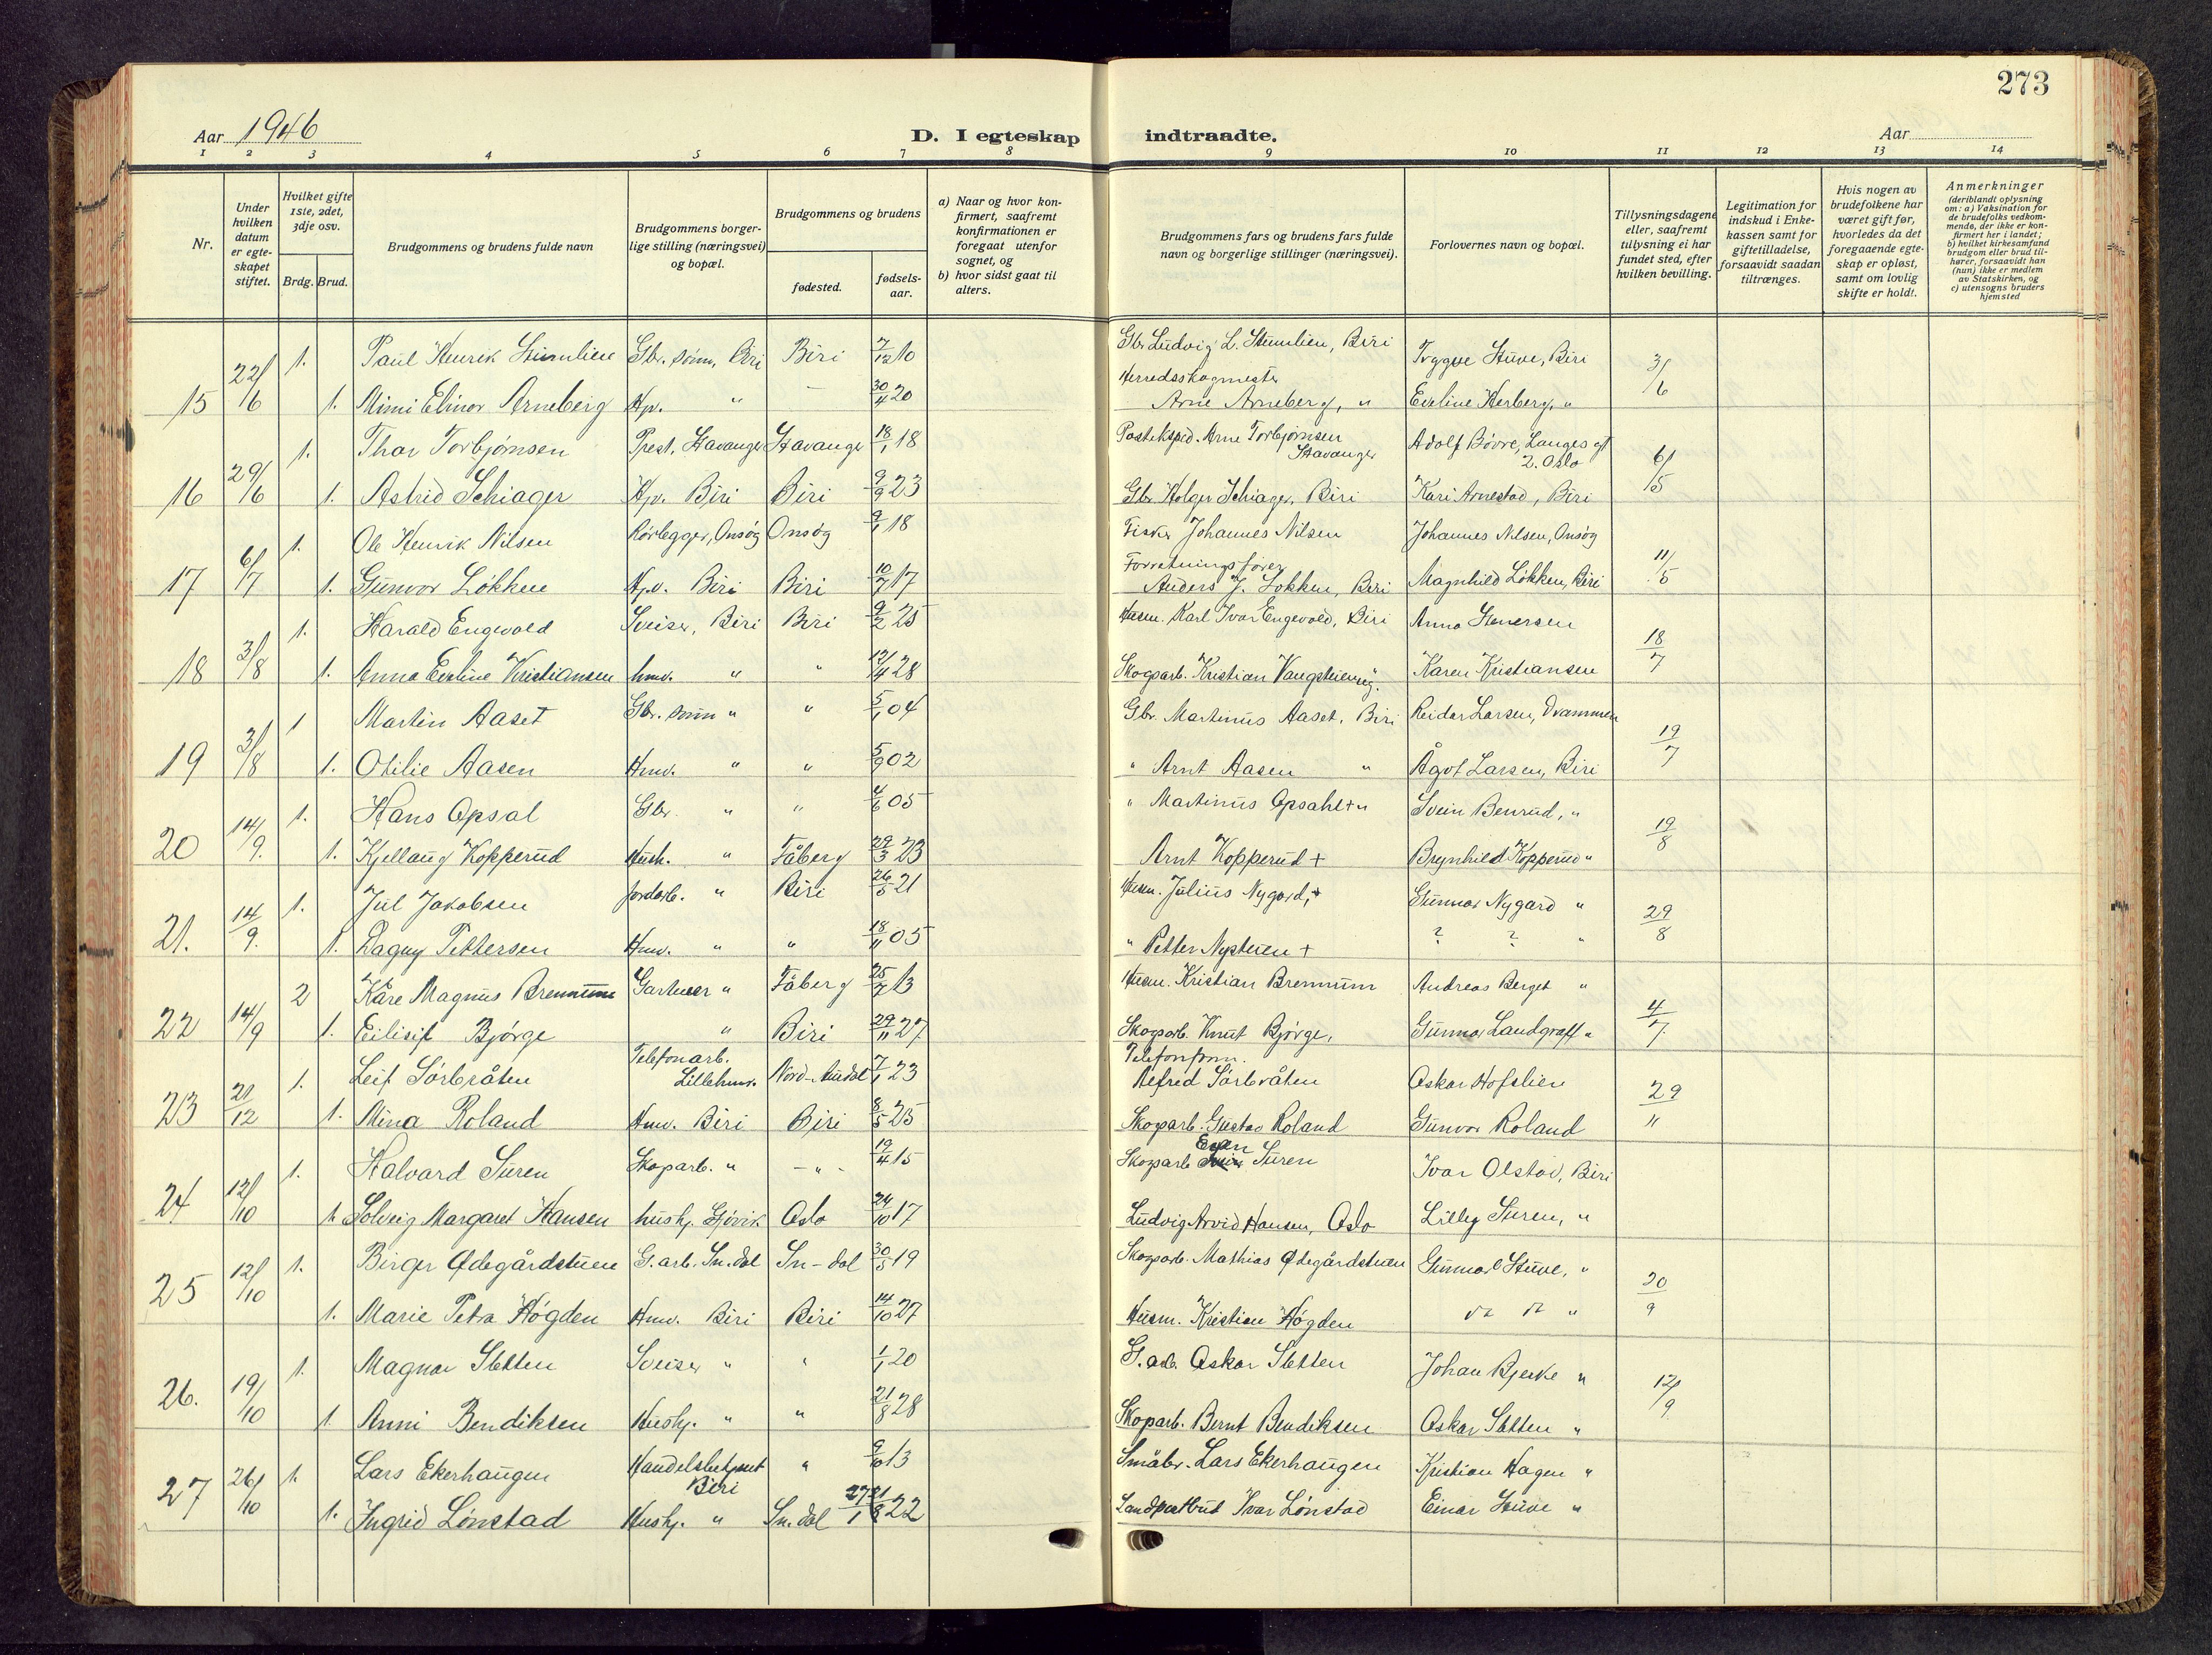 273
Aar 1946
D. I egteskap indtraadte.
Aar
1 2 3 4 5 6 7 8 9 10 11 12 13 14
Nr.
Under hvilken datum er egte-skapet stiftet.
Hvilket gifte 1ste, 2det, 3dje osv.
Brdg. Brud.
Brudgommens og brudens fulde navn
Brudgommens borger-lige stilling (næringsvei) og bopæl.
Brudgommens og brudens
fødested.
fødsels-aar.
a) Naar og hvor kon-firmert, saafremt konfirmationen er foregaat utenfor sognet, og
b) hvor sidst gaat til alters.
Brudgommens fars og brudens fars fulde navn og borgerlige stillinger (næringsvei).
Forlovernes navn og bopæl.
Tillysningsdagene eller, saafremt tillysning ei har fundet sted, efter hvilken bevilling.
Legitimation for indskud i Enke-kassen samt for giftetilladelse, forsaavidt saadan tiltrænges.
Hvis nogen av brudefolkene har været gift før, hvorledes da det foregaaende egte-skap er opløst, samt om lovlig skifte er holdt.
Anmerkninger (deriblandt oplysning om: a) Vaksination for de brudefolks vedkom-mende, der ikke er kon-firmert her i landet; b) hvilket kirkesamfund brudgom eller brud til-hører, forsaavidt han (hun) ikke er medlem av Statskirken, og c) utensogns bruders hjemsted
1. Paul Henrik Stumlien Gbr. sønn, Biri Biri 7/12 10 Gbr Ludvig L. Stumlien, Biri Tryggve Stuve, Biri 3/6
15 22/6 1. Mimi Elinor Arneberg Hp. " — 30/4 20 Herredsskogmester Arne Arneberg, " Eveline Herberg, "
1. Thor Torbjørnsen Prest, Stavanger Stavanger 18/1 18 Posteksped. Arne Torbjørnsen Stavanger Adolf Bøvre, Langes gt 2. Oslo 6/5
16 29/6 1. Astrid Schiager Hp. Biri Biri 9/9 23 Gbr. Holger Schiager, Biri Kari Arnestad, Biri
1. Ole Henrik Nilsen Rørlegger, Onsøy Onsøy 9/1 18 Fisker Johannes Nilsen Johannes Nilsen, Onsøy 11/5
17 6/7 1. Gunvor Løkken Hp. Biri Biri 10/7 17 Forretningsfører Anders J. Løkken, Biri Magnhild Løkken, Biri
1. Harald Engevold Sveiser, Biri Biri 9/2 25 Husm. Karl Ivar Engevold, Biri Anna Stenersen 18/7
18 3/8 1. Anna Eveline Kristiansen hmv. " " 12/4 28 Skogsarb. Kristian Vangstueeng. Karen Kristiansen
1 Martin Aaset Gbr. sønn " " 5/1 04 Gbr. Martinus Aaset, Biri Reidar Larsen, Drammen 19/7
19 3/8 1. Otilie Aasen Hmv. " " 5/9 02 " Arnt Aasen " Ågot Larsen, Biri
1. Hans Opsal Gbr. " " 4/6 05 " Martinus Opsahl + " Svein Benrud, " 19/8
20 14/9. 1. Kjellaug Kopperud Hush. " Fåberg 29/3 23 Arnt Kopperud + Brynhild Kopperud "
1. Jul Jakobsen Jordarb. " Biri 26/5 21 Husm. Julius Nygard, + Gunnar Nygard " 29/8
21. 14/9. 1. Dagny Pettersen Hmv. " " 18/11 05 " Petter Nystuen + ? ? "
2 Kåre Magnus Brennum Gartner " Fåberg 25/7 13 Husm. Kristian Brennum Andreas Berget " 4/7.
22 14/9 1. Eilisif Bjørge " Biri 29/11 27 Skogsarb. Knut Bjørge. Gunnar Landgraff "
1. Leif Sørbråten Telefonarb. Lillehmr. Nord-Aurdal 7/1 23 Telefonform. Alfred Sørbråten Oskar Hofslien 29/11
23 21/12 1. Mina Roland Hmv. Biri Biri 8/5 25 Skogsarb. Gustav Roland Gunvor Roland
1. Halvard Suren Skogarb. " - " - 19/4 15 Skogsarb Even Suren Ivar Olstad, Biri
24 12/10 1. Solveig Margaret Hansen hushj. Gjøvik Oslo 24/10 17 Ludvig Arvid Hansen, Oslo Lilly Suren, "
1. Birger Ødegårdstuen G. arb. Sn. dal Sn-dal 30/5 19 Skogsarb. Mathias Ødegårdstuen Gunnar Stuve, " 20/9
25 12/10 1. Marie Petra Høgden Hmv. Biri Biri 14/10 27 Husm. Kristian Høgden
1. Magnar Sletten Sveiser " " 1/1 20 G. arb. Oskar Sletten Johan Bjerke " 12/9
26. 19/10 1. Anni Bendiksen Hushj. " " 21/8 28 Skogarb. Bernt Bendiksen Oskar Sletten "
1. Lars Ekerhaugen Handelsbetjent Biri " 9/6 13 Småbr. Lars Ekerhaugen Kristian Hagen "
27 26/10 1. Ingrid Lønstad Hushj. " Sn. dal 27/1 22 Landpostbud Ivar Lønstad Einar Stuve "